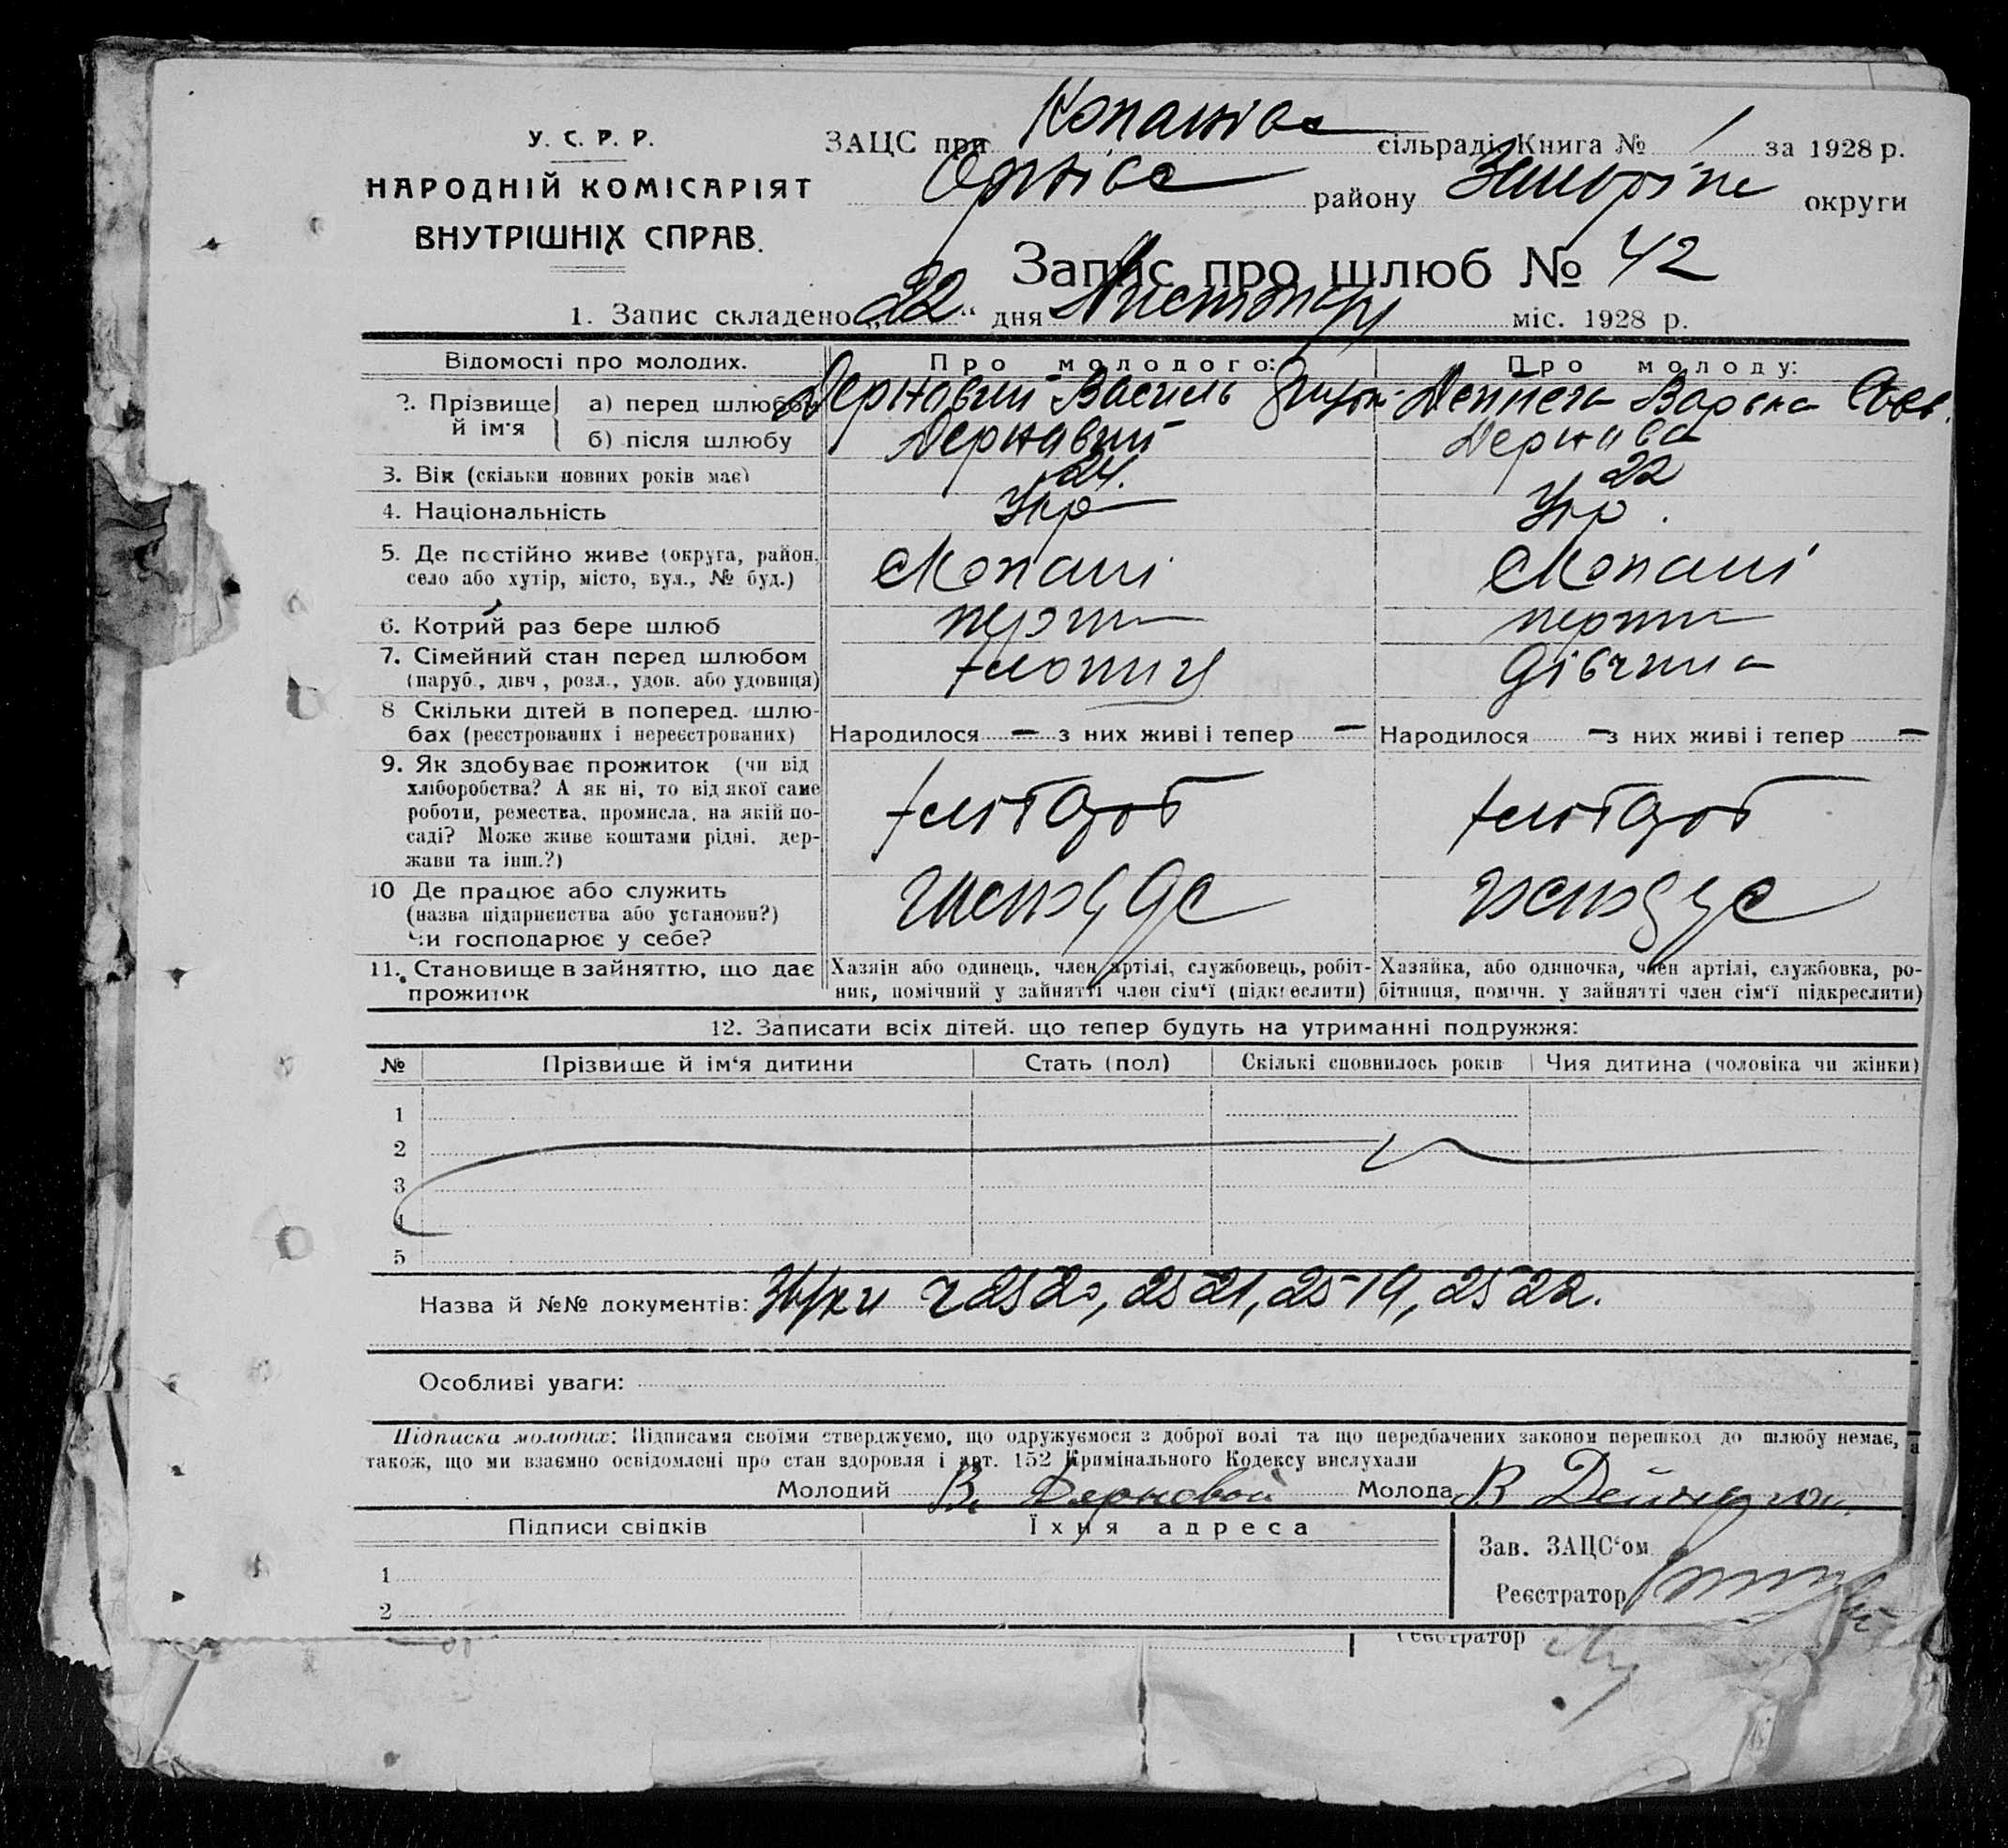 У. С. Р. Р.
НАРОДНІЙ КОМІСАРІЯТ
ВНУТРІШНІХ СПРАВ.
ЗАЦС при Копанівс сільраді Книга № 1 за 1928 р.
Оріхівс району Запоріж округи
Запис про шлюб № 42
1. Запис складено „22“ дня Листопад міс. 1928 р.
Відомості про молодих. Про молодого: Про молоду:
2. Прізвище й ім'я а) перед шлюбом Державий Василь Варька
б) після шлюбу Держав
3. Вік (скільки повних років має) 24. 22
4. Національність Укр Укр.
5. Де постійно живе (округа, район, село або хутір, місто, вул., № буд.) с Копані с Копані
6. Котрий раз бере шлюб перши перши
7. Сімейний стан перед шлюбом (паруб., дівч., розл., удов. або удовиця) хлопиц дівчина
8 Скільки дітей в поперед. шлюбах (реєстрованих і нереєстрованих) Народилося — з них живі і тепер — Народилося — з них живі і тепер —
9. Як здобуває прожиток (чи від
хліборобства? А як ні, то від якої саме
роботи, ремества, промисла, на якій по-
саді? Може живе коштами рідні, дер-
жави та інш.?) хлібороб хлібороб
10 Де працює або служить
(назва підприємства або установи?)
Чи господарює у себе?
11. Становище в зайняттю, що дає прожиток
Хазяїн або одинець, член артілі, службовець, робіт-
ник, помічний у зайнятті член сім'ї (підкреслити)
Хазяйка, або одиночка, член артілі, службовка, ро-
бітниця, помічн. у зайнятті член сім'ї підкреслити)
12. Записати всіх дітей. що тепер будуть на утриманні подружжя:
№ Прізвище й ім'я дитини Стать (пол) Скількі сповнилось років Чия дитина (чоловіка чи жінки)
1
2
3
4
5
Назва й №№ документів: ч 2520, 2521, 2519, 2522.
Особливі уваги:
Підписка молодих: Підписами своїми стверджуємо, що одружуємося з доброї волі та що передбачених законом перешкод до шлюбу немає,
також, що ми взаємно освідомлені про стан здоровля і арт. 152 Кримінального Кодексу вислухали
Молодий В Молода В
Підписи свідків Їхня адреса
Зав. ЗАЦС'ом
1
Реєстратор
2
Реєстратор